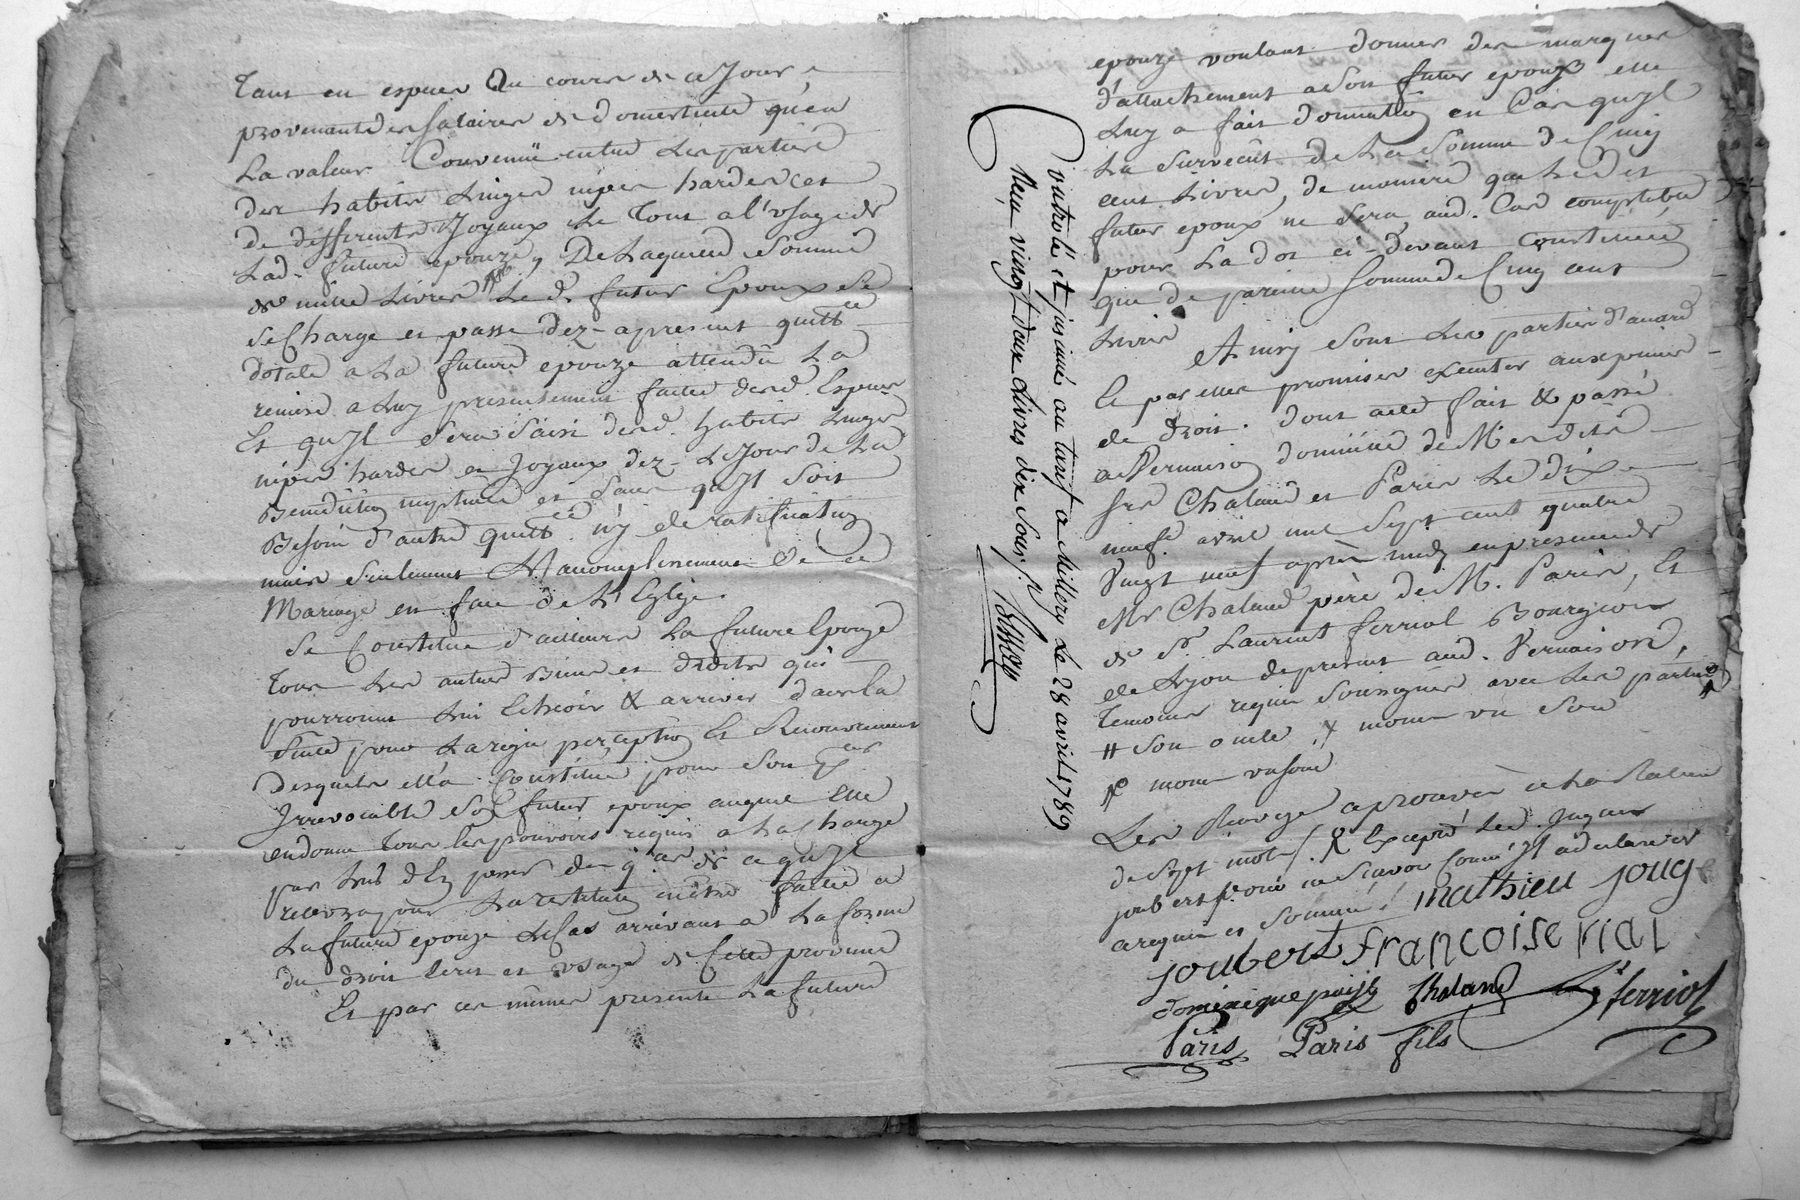 tant en especes Du cours de ce Jour
provenante des salaires de domesticite qu'en
La valeur Convenüe entre Les parties
des habits Linges nipes hardes et
de differents Joyaux Le Tout a l'usage de
Lad. future epouze, De Laquelle Somme
de mille Livres Le d. futur Epoux Se
Se Charge et passe dez apresent quittce
dotale a La future epouze attendu La
remise a Luy presentement faitte desd. Especes
Et qu'Jl Sera Saisi desd. habits Linges
nipes hardes et Joyaux dez Le Jour de La
Benediction nuptiale et Sans qu'Jl Soit
Besoin d'autre quittce ny de ratification
mais Seulement L'accomplissement de ce
Mariage en face de L'Eglize.
Se Constitue d'ailleurs La future Epouze
Tous Les autres Biens et droits qui
pourront Lui Echeoir & arriver dans la
Suite pour La regie perception Et Recouvrement
Desquels ella Constitué pour Son
Jrrevocable Sod futur epoux auquel Elle
en donne Tous Les pouvoirs requis a La Charge
par Lui d'En passer des de ce qu'Jl
recevra pour La restitution en être faitte a
La future epouze Le Cas arrivant a La forme
du droit Ecrit et usage de Cette province
Et par ces mêmes presentes La future
epouze voulant donner des marques
d'attachement a Son futur epoux elle
Luy a fait donnation en Cas qu'Jl
La Survecût de La Somme de Cinq
cent Livres, de maniere que Led et
futur epoux ne Sera aud. Cas comptable
pour La dot ci-devant Constituée
que de pareille Somme de Cinq cent
Livres
Ainsy Sont Les parties d'accord
Et par elles promises executer aux peines
de droit. dont acte fait & passé
a Vernaison domicile de Mer dite
Sre Chaland et Paris Le dix
neuf. avril mil Sept cent quatre
Vingt neuf après midy en presence de
Mr Chaland père de M. Paris, Et
de Sr. Laurent ferriol Bourgeois
de Lyon de present aud. Vernaison,
Temoins requis Soussignés avec Les parties
# Son oncle # moins un Sou
moins un Sou
Les Renvoye aprouvés et La Rature
de Sept mots/. & Excepté Led. Jugan
joubert pour ne Scavoir Comme Jl a declaré
a requis et Sommé./.
mathieu jouge
joubert francoise rial
dominique puijs Chaland Lt ferriol
Paris Paris fils
Controlé et jnsinué au tarif a Millery Le 28 avril 1789
Reçu vingt deux Livres dix Sous./.